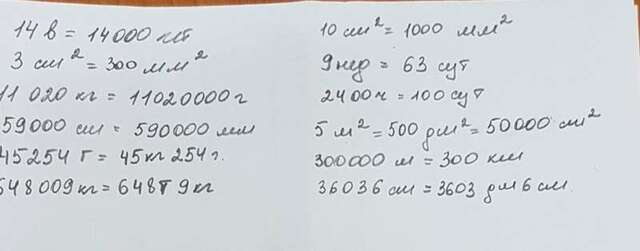 14 в = 14000 лет
3 см² = 300 мм²
11 020 кг = 11020000 г
59000 см = 590000 мм
45254 г = 45 кг 254 г.
648009 кг = 648 т 9 кг
10 см² = 1000 мм²
9 нед = 63 сут
2400 ч = 100 сут
5 м² = 500 дм² = 50000 см²
300000 м = 300 км
36036 см = 3603 дм 6 см